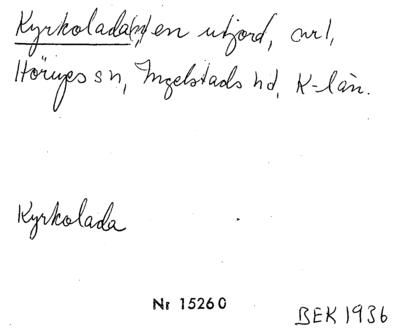 Kyrkolada(n) en utjord, avl,
Höryes sn, Ingelstads hd, K-län.
Kyrkolada
Nr 15260
BEK 1936